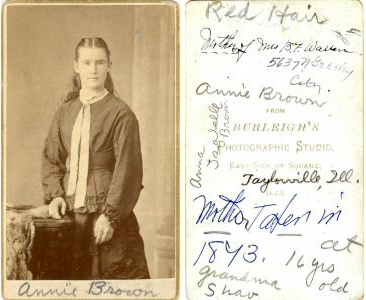 Annie Brown
Red Hair
Mother of Mrs B.F.
5637
City.
Annie Brown
Anna Isabelle
Brown
FROM
BURLEIGH'S
PHOTOGRAPHIC STUDIO,
EAST SIDE OF SQUARE,
Taylorville, Ill.
ILLS.
Mother Taken in
1873. at
16 yrs
old
grandma
Shaw